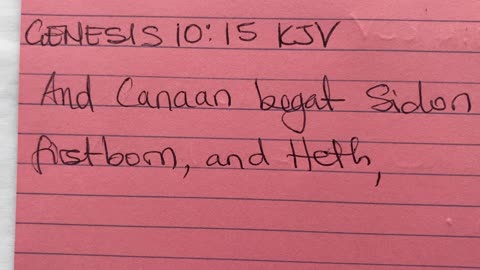 GENESIS 10:15 KJV
And Canaan begat Sidon
firstborn, and Heth,